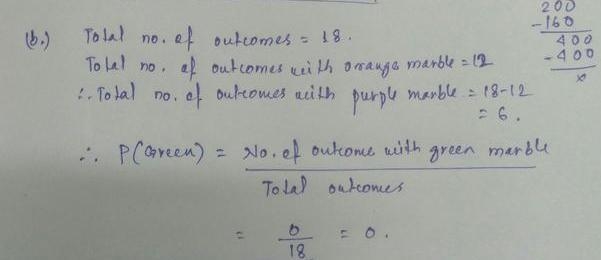 (b.) Total no. of outcomes = 18.
Total no. of outcomes with orange marble = 12
∴ Total no. of outcomes with purple marble = 18-12
= 6.
∴ P(Green) = No. of outcome with green marble
Total outcomes
= 0
18
= 0.
200
-160
400
-400
x